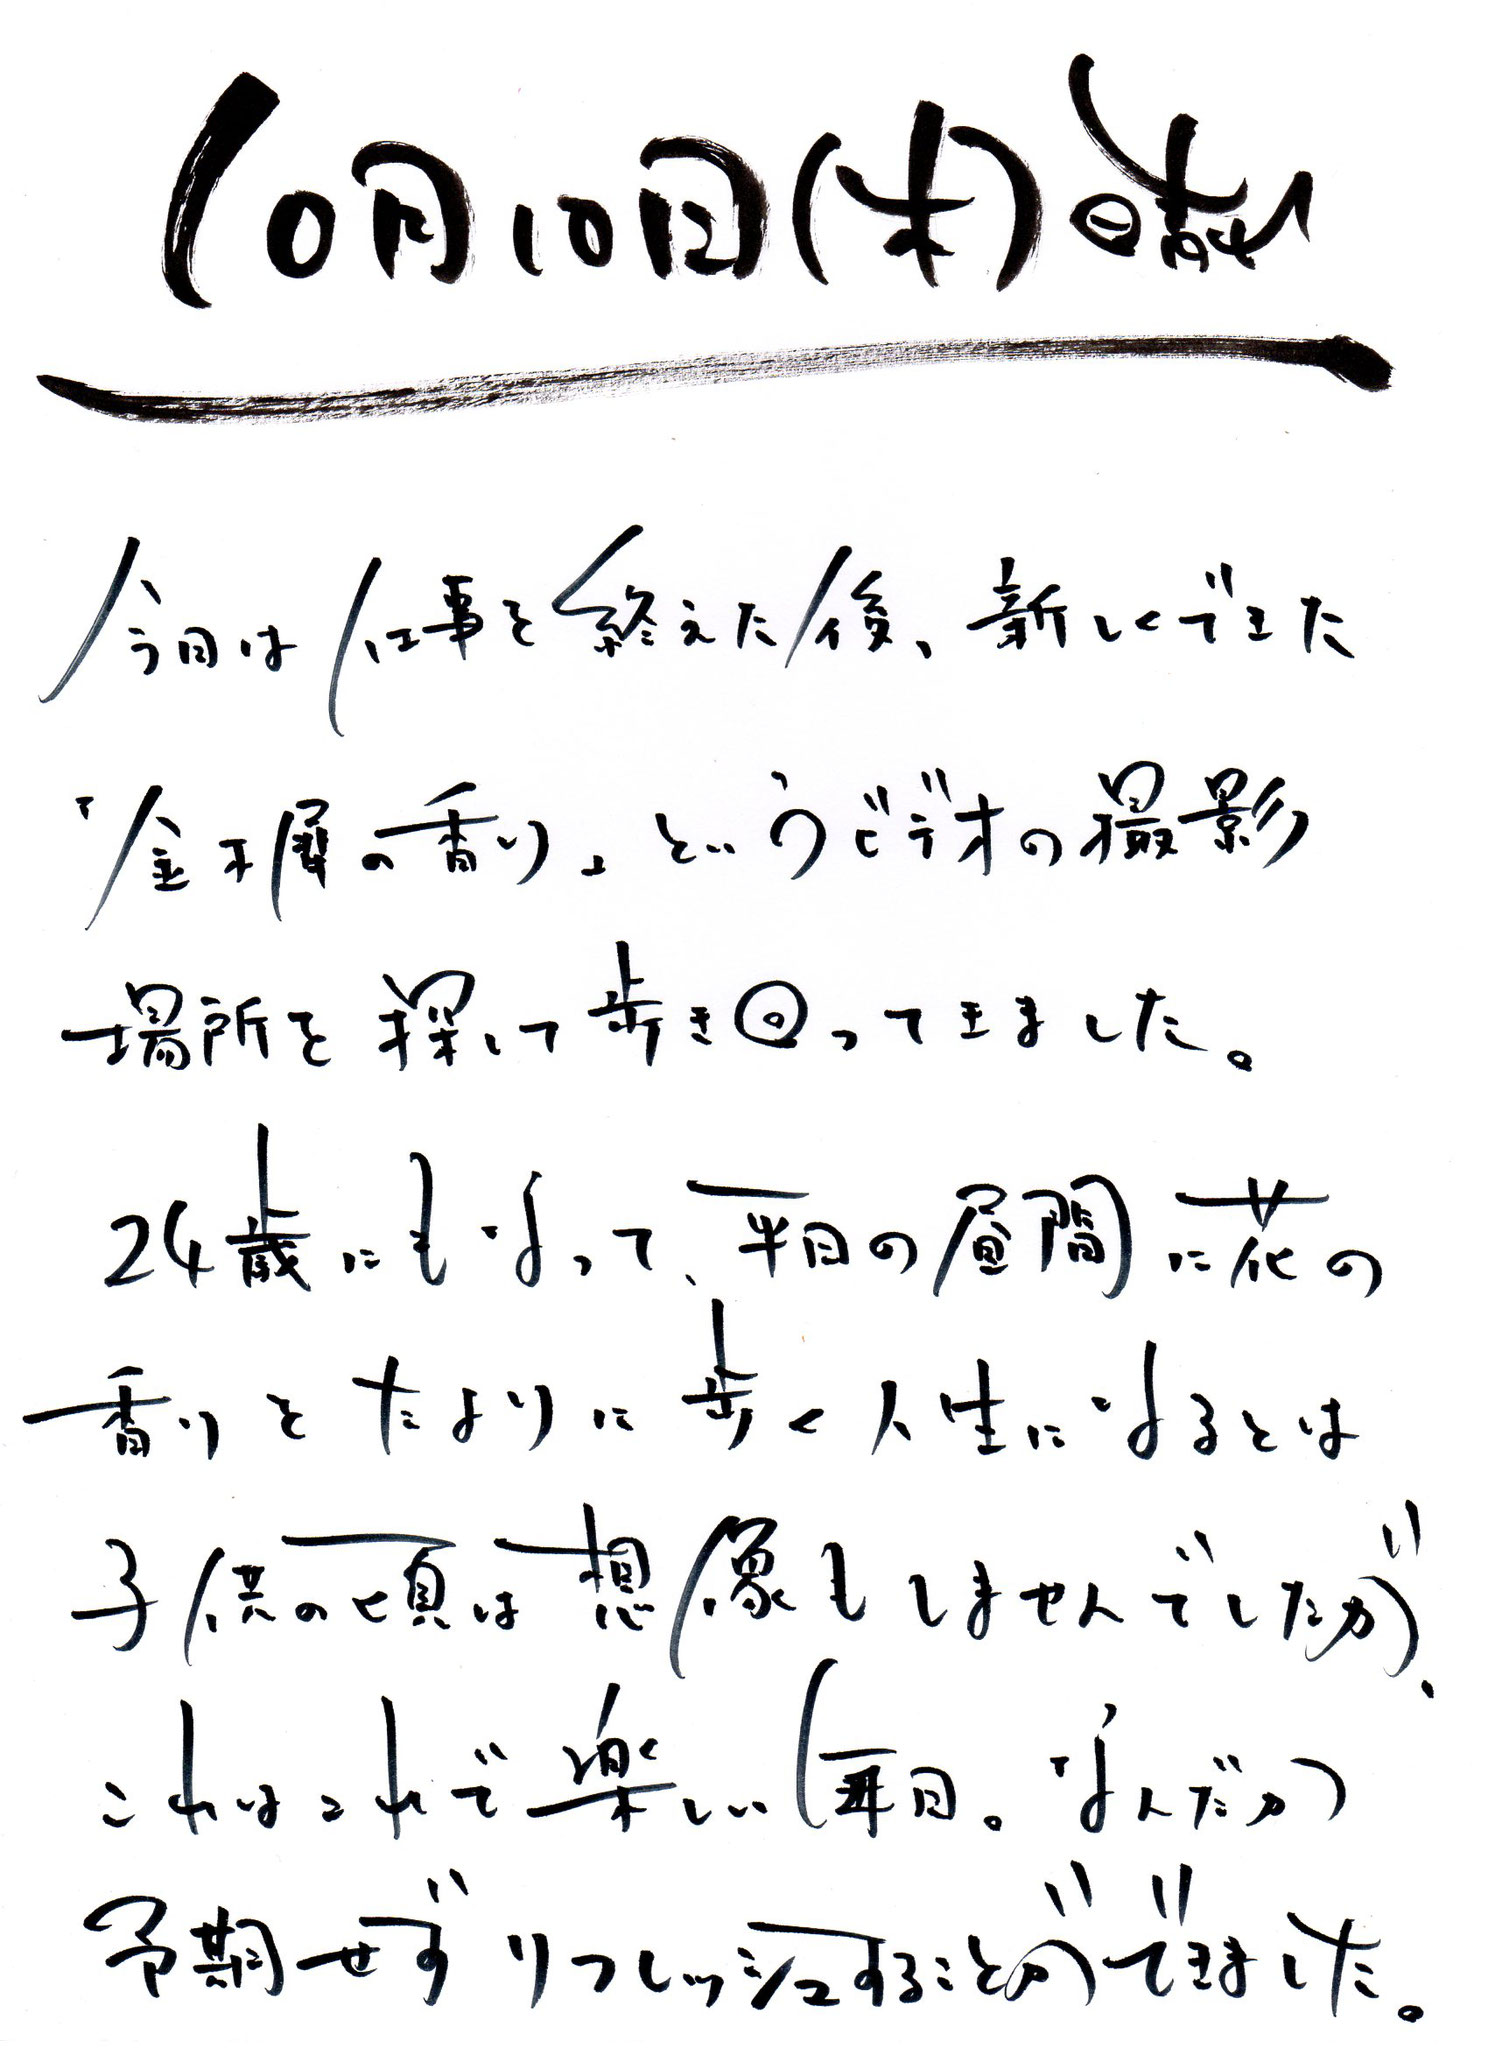 10月10日(木)晴れ
今日は仕事を終えた後、新しくできた
「金木犀の香り」というビデオの撮影
場所を探して歩き回ってきました。
24歳にもなって、平日の昼間に花の
香りをたよりに歩く人生になるとは
子供の頃は想像もしませんでしたが、
これはこれで楽しい毎日。なんだか
予期せずリフレッシュすることができました。